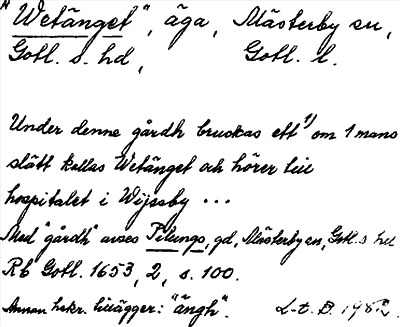 "Wetänget", äga, Mästerby sn,
Gotl. s. hd, Gotl. l.
Under denne gårdh bruckas ett 1) om 1 mans
slått kallas Wetänget och hörer till
hospitalet i Wijssby ...
Med "gårdh" avses Tilungs, gd, Mästerby sn, Gotl. s hd
Rb Gotl. 1653, 2, s. 100.
Annan hskr. tillägger: "ängh". L-t. B. 1982.